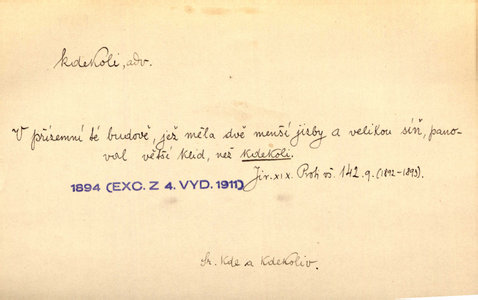 kdekoli, adv.
V přízemní té budově, jež měla dvě menší jizby a velikou síň, pano-
val větší klid, než kdekoli.
Jir. XIX. 142. 9. (1892-1893).
1894 (EXC. Z 4. VYD. 1911)
Sr. kde a kdekoliv.